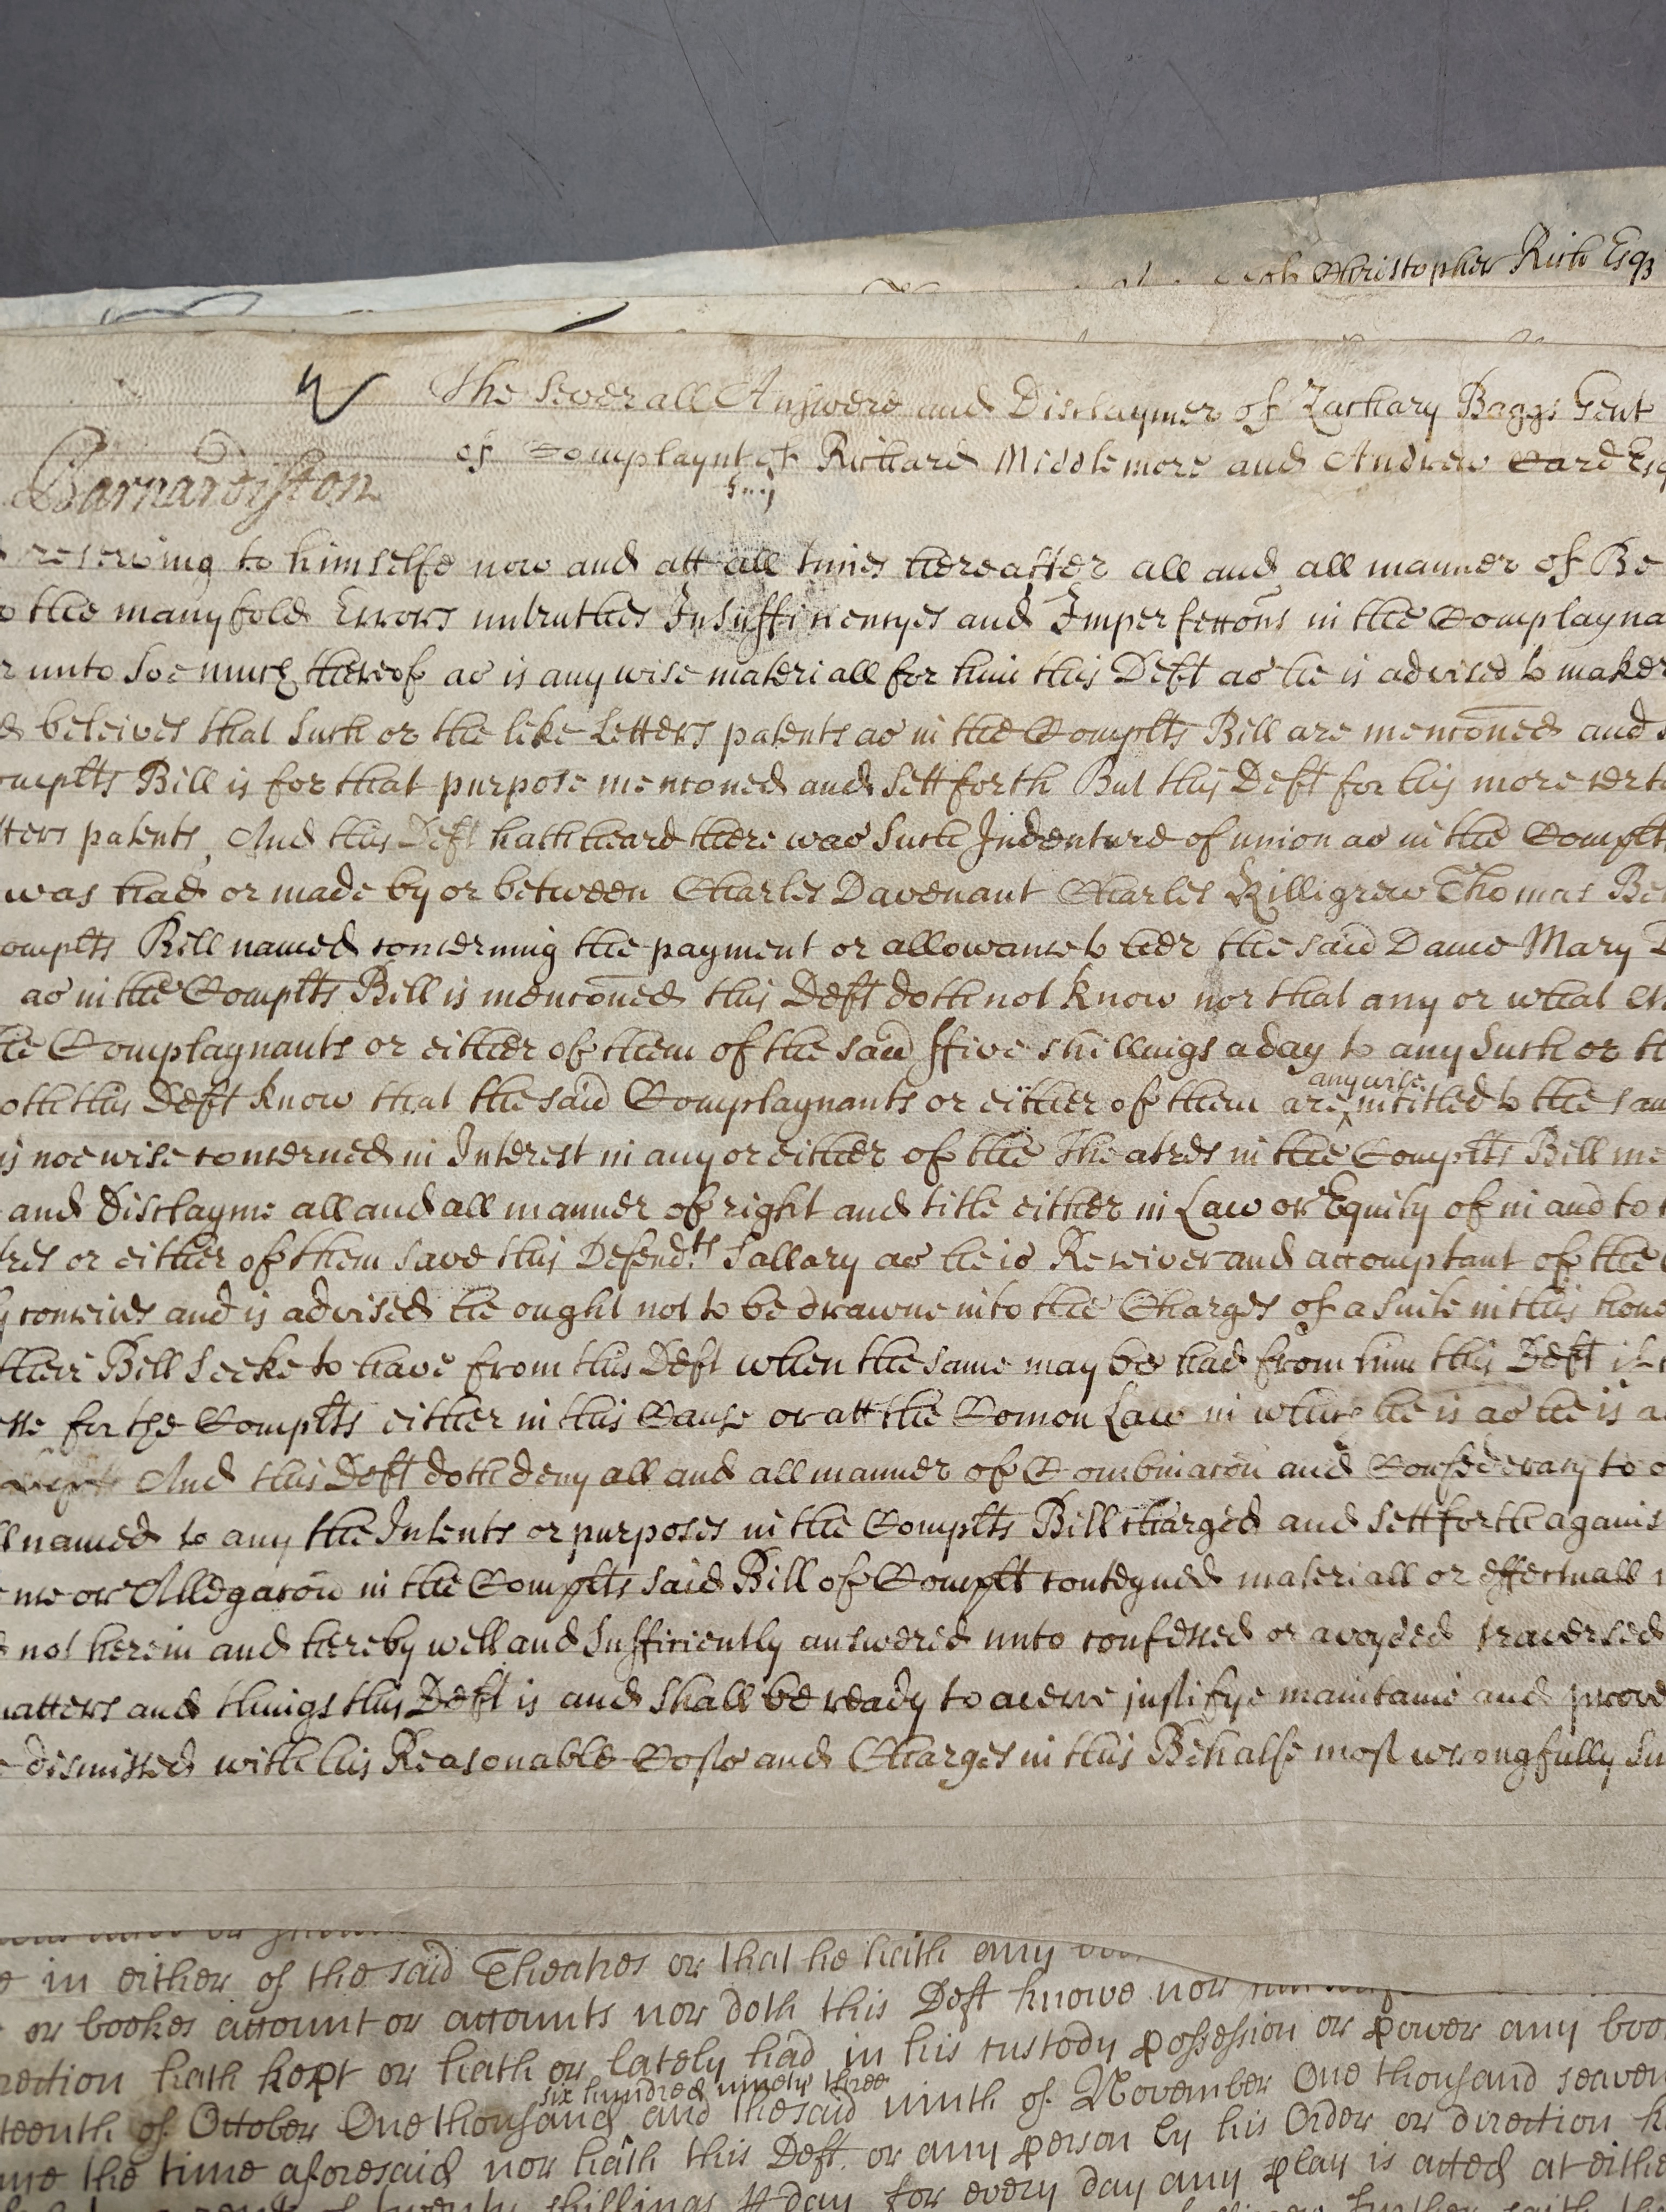 Christopher Rich Esqr
The severall Answere and Disclaymer of Zachary Baggs Gent
of Complaynt of Richard Middlemore and Andrew Card Esq
Barnardiston
reserving to himselfe now and att all times hereafter all and all manner of Be
the manyfold Errors untruthes Insufficiencyes and Imperfeccons in the Complayna
unto soe much thereof as is any wise materiall for him this Deft as he is advised to maker
beleives that such or the like Letters patents as in the Complts Bill are menconed and
omplts Bill is for that purpose menconed and sett forth But this Deft for his more certa
tters patents, And this Deft hath heard there was such Indenture of union as in the Complt
was had or made by or between Charles Davenant Charles Killigrew Thomas Be
omplts Bill named concerning the payment or allowance to her the said Dame Mary D
as in the Complts Bill is menconed this Deft doth not know nor that any or what
the Complaynants or either of them of the said ffive shillings a day to any such or th
oth this Deft know that the said Complaynants or either of them are anywise intitled to the sam
is noe wise concerned in Interest in any or either of the Theatres in the Complts Bill me
and Disclayme all and all manner of right and title either in Law or Equity of in and to
tres or either of them save this Defendts sallary as he is Receiver and accomptant of the
conceives and is advised he ought not to be drawne into the Charges of a suite in this hono
their Bill seeke to have from this Deft when the same may be had from him this Deft
sse for the Complts either in this Cause or att the Comon Law in which he is as he is a
And this Deft doth deny all and all manner of Combinacon and Confederacy to
ll named to any the Intents or purposes in the Complts Bill charged and sett forth agains
me or Allegacon in the Complts said Bill of Complt conteyned materiall or effectuall
not herein and hereby well and sufficiently answered unto confessed or avoyded traversed
atters and things this Deft is and shall be ready to averre justifye maintaine and prove
dismissed with his Reasonable Costs and Charges in this Behalfe most wrongfully su
e in either of the said Theatres or that he hath any
or bookes account or accounts nor doth this Deft knowe nor
rection hath kept or hath or lately had in his custody possession or power any boo
teenth of October One thousand six hundred ninety three and the said ninth of November One thousand seaven
me the time aforesaid nor hath this Deft or any person by his Order or direction h
twenty shillings p day for every day any play is acted at eithe